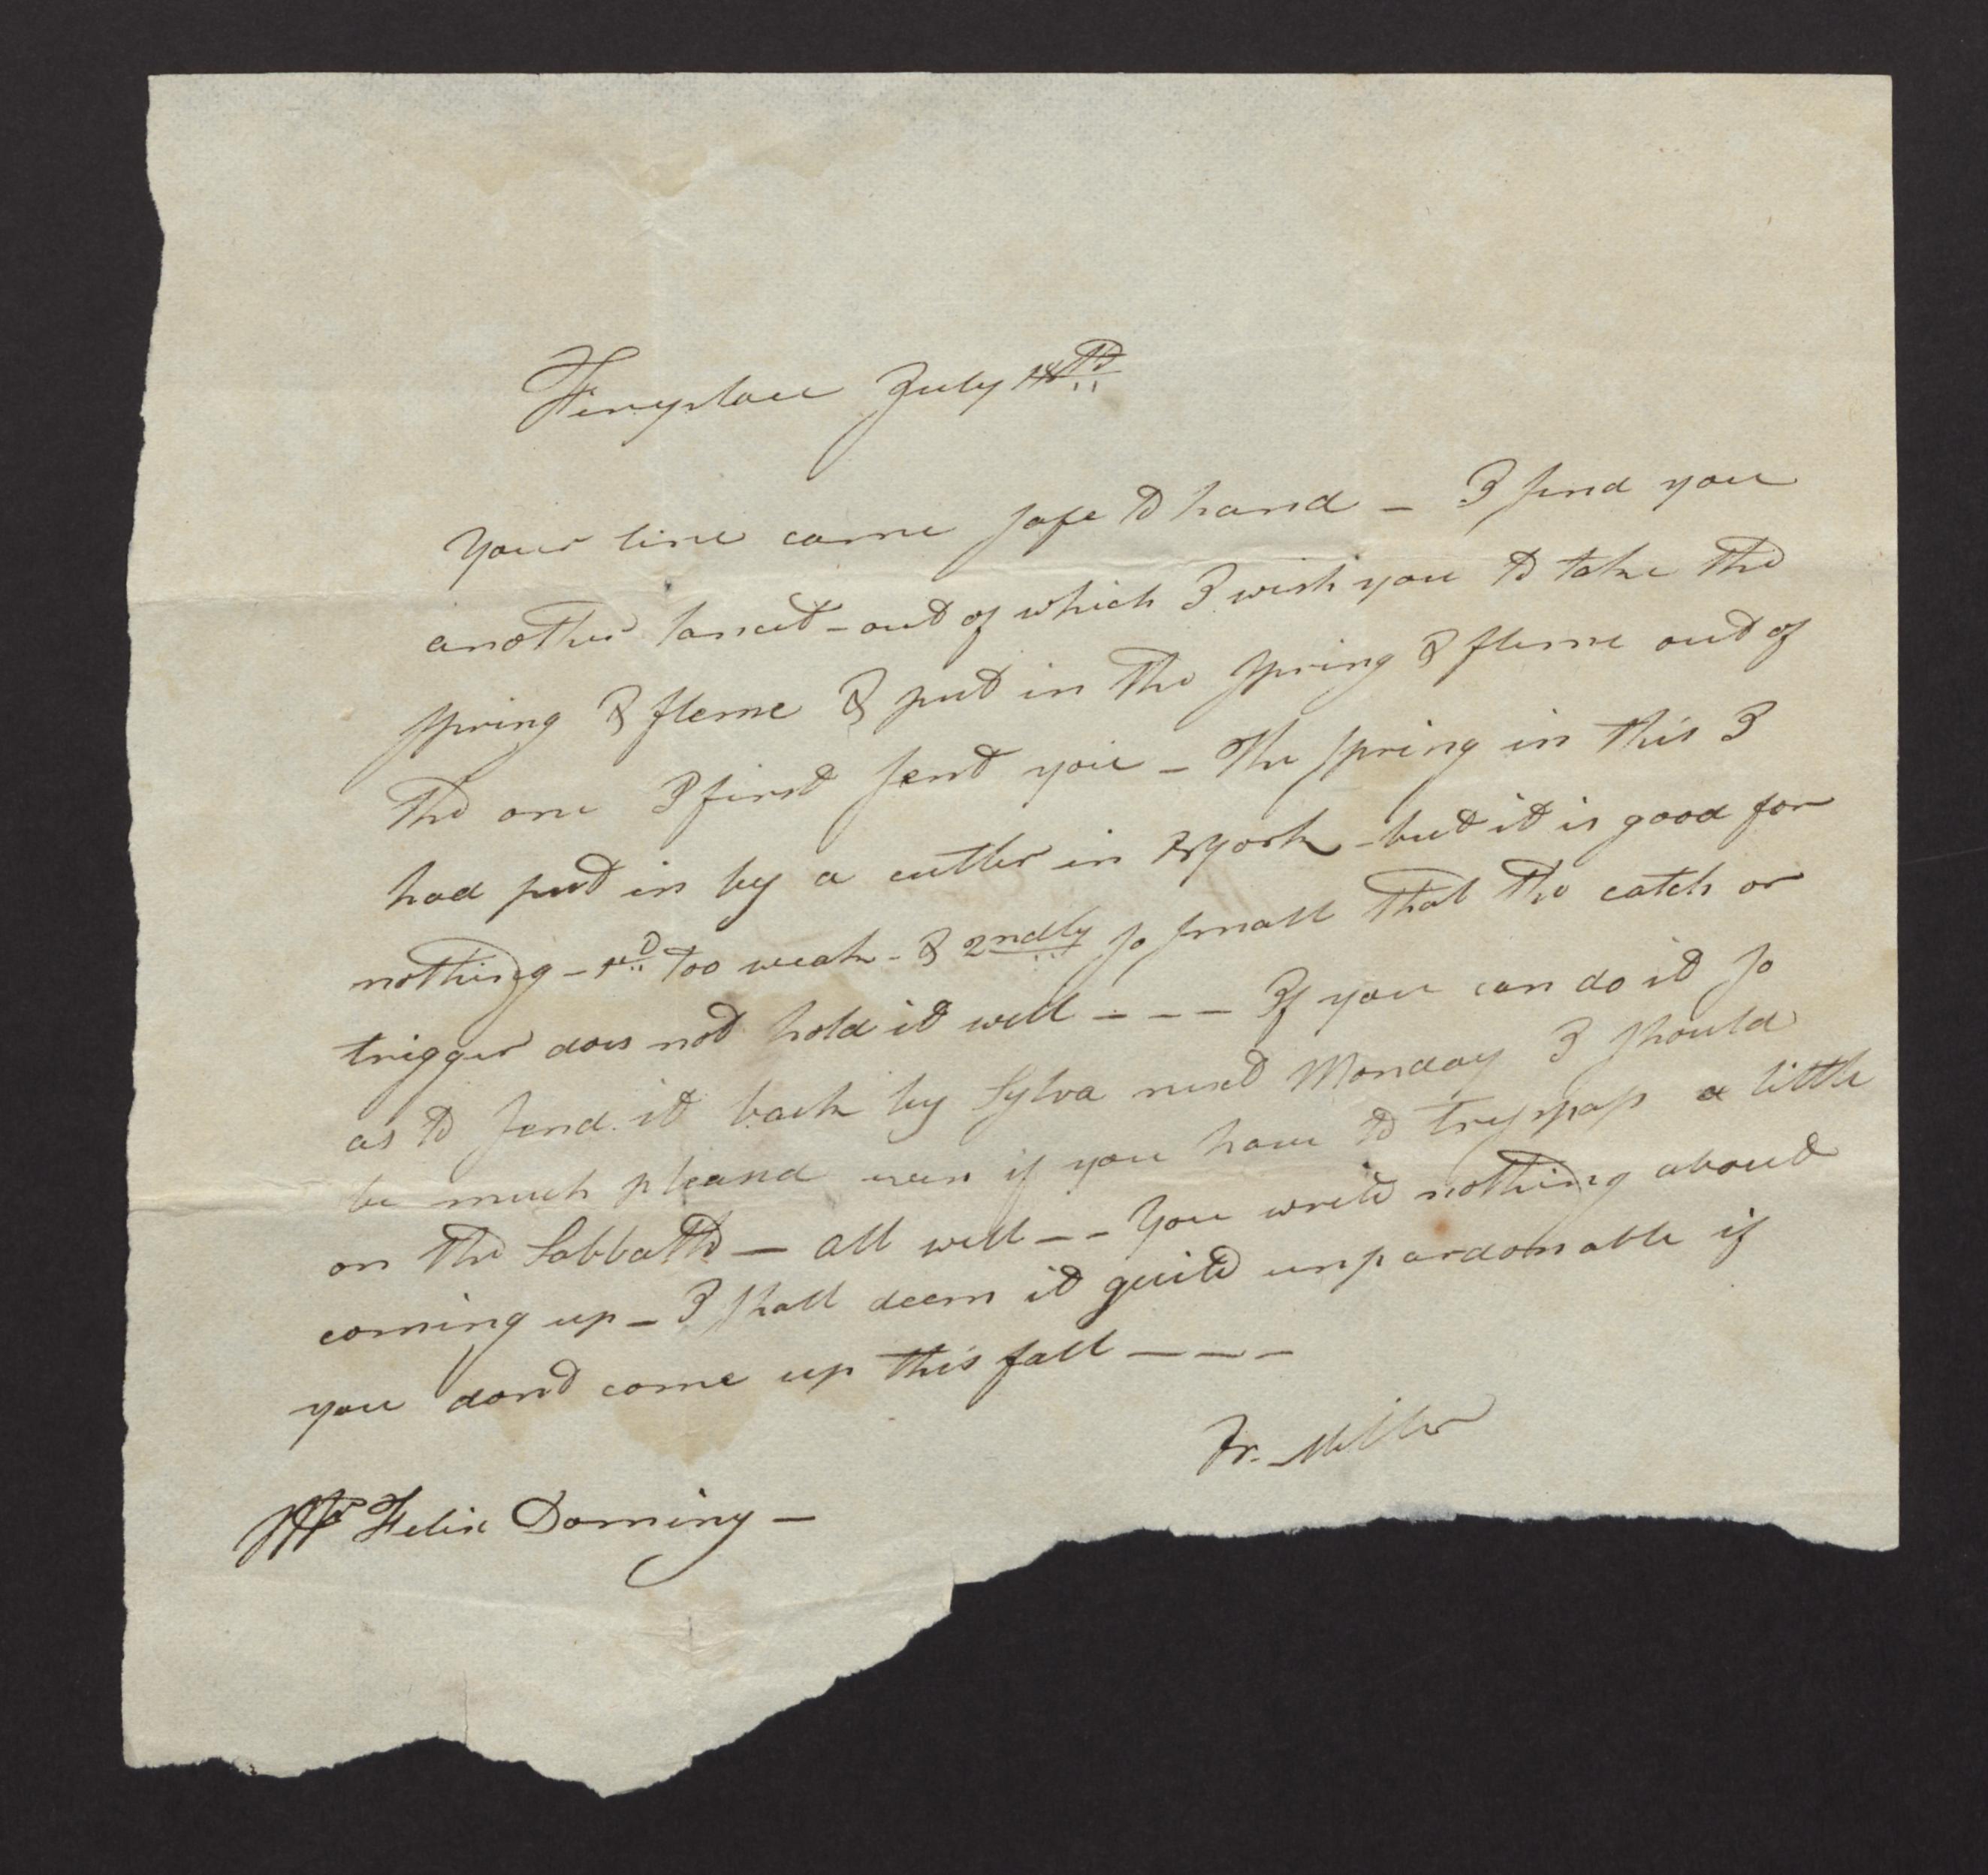 Fireplace July 18th
Your line came safe to hand - I send you
another lancet - out of which I wish you to take the
spring & fleme & put in the spring & fleme out of
the one I first sent you - The spring in this I
had put in by a cutler in NYork - but it is good for
nothing - 1st too weak - & 2ndly so small that the catch or
trigger does not hold it well - - - If you can do it so
as to send it back by Sylva next Monday I should
be much pleased even if you have to tryspass a little
on the Sabbath - all well - - You write nothing about
coming up - I shall deem it quite unpardonable if
you dont come up this fall - - -
Jr. Miller
Mr Felix Dominy -